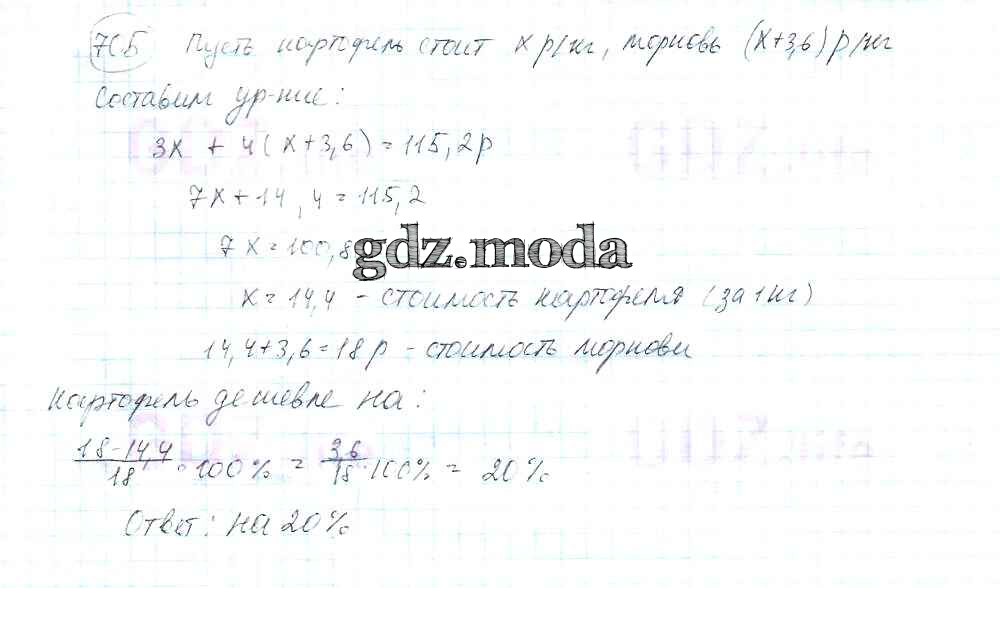 Пусть картофель стоит x р/кг, морковь (x+3,6) р/кг
Составим ур-ние:
3x + 4(x+3,6)=115,2р
7x+14,4=115,2
7x=100,8
gdz.moda
x=14,4 - стоимость картофеля (за 1 кг)
14,4+3,6=18р - стоимость моркови
картофель дешевле на:
18-14,4/18 · 100% = 3,6/18 · 100% = 20%
Ответ: на 20%